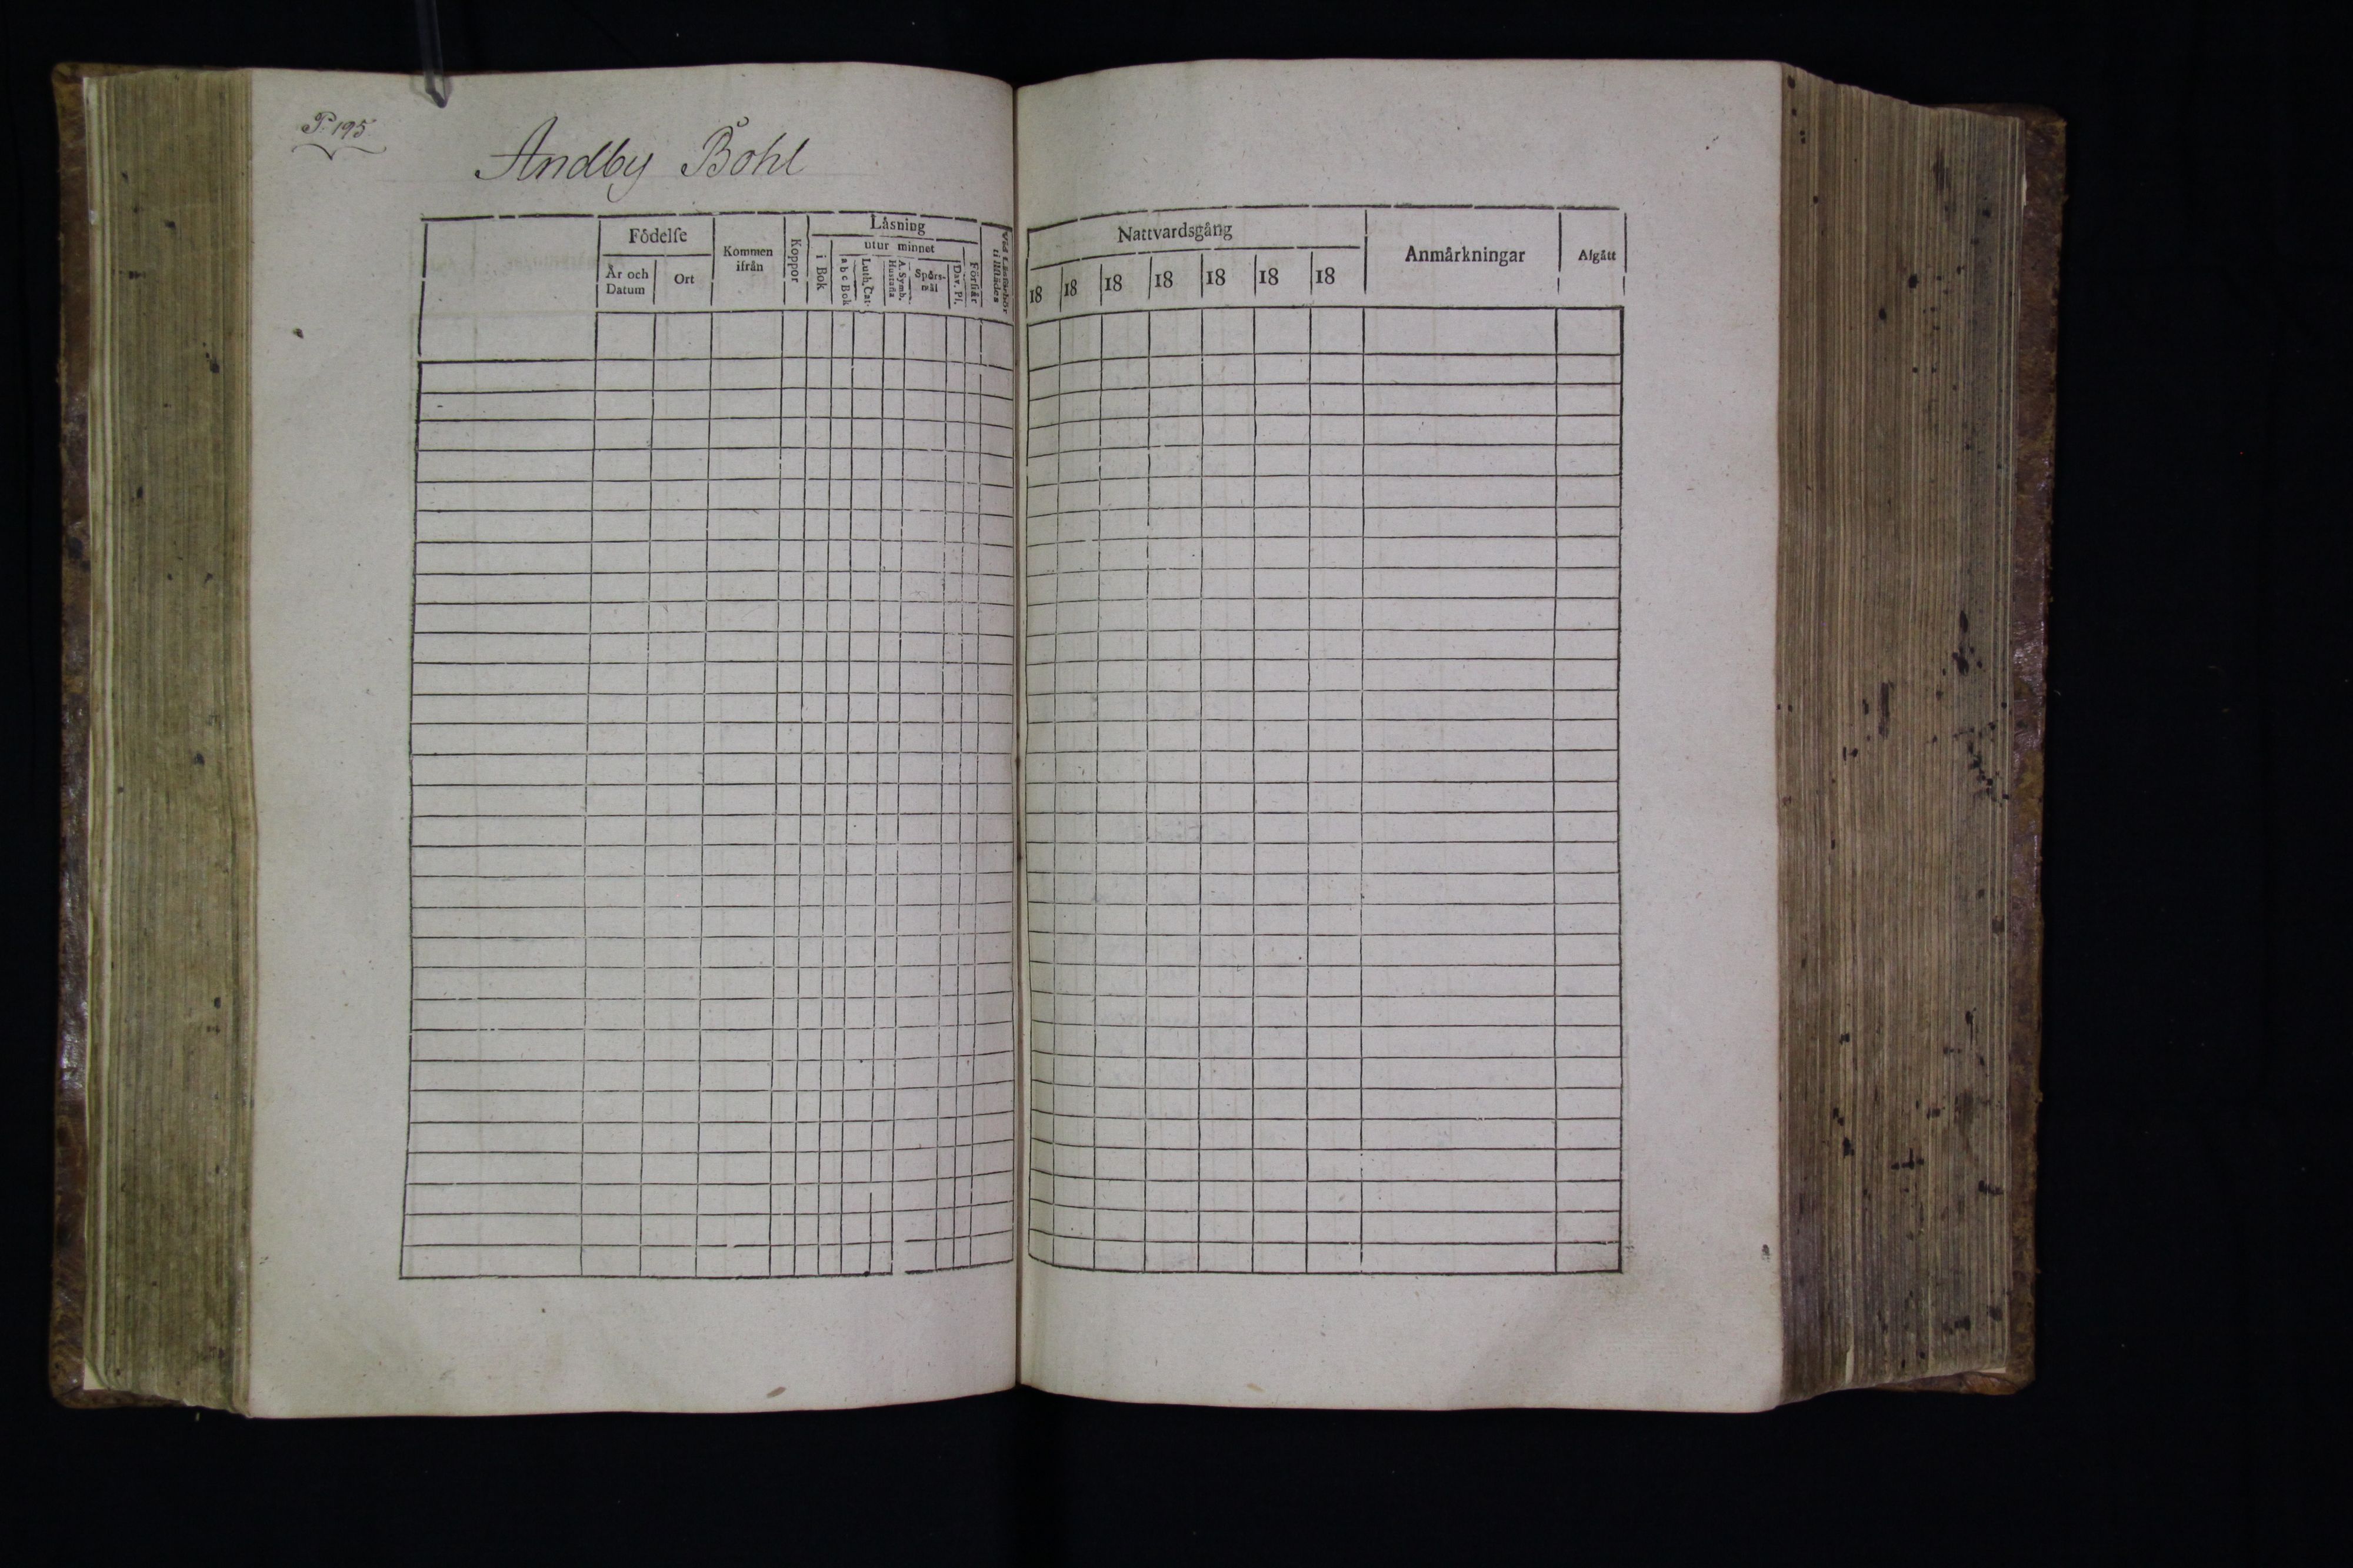 P. 195.
Andby Bohl
Födelse
År och Datum
Ort
Kommen ifrån
Koppor
Läsning
i Bok
utur minnet
a b c Bok
Luth. Cat.
A. Symb. Hustafla
Spörs-mål
Dav. Ps.
Förstår
Nattvardsgång
18 18 18 18 18 18 18
Anmärkningar
Afgått